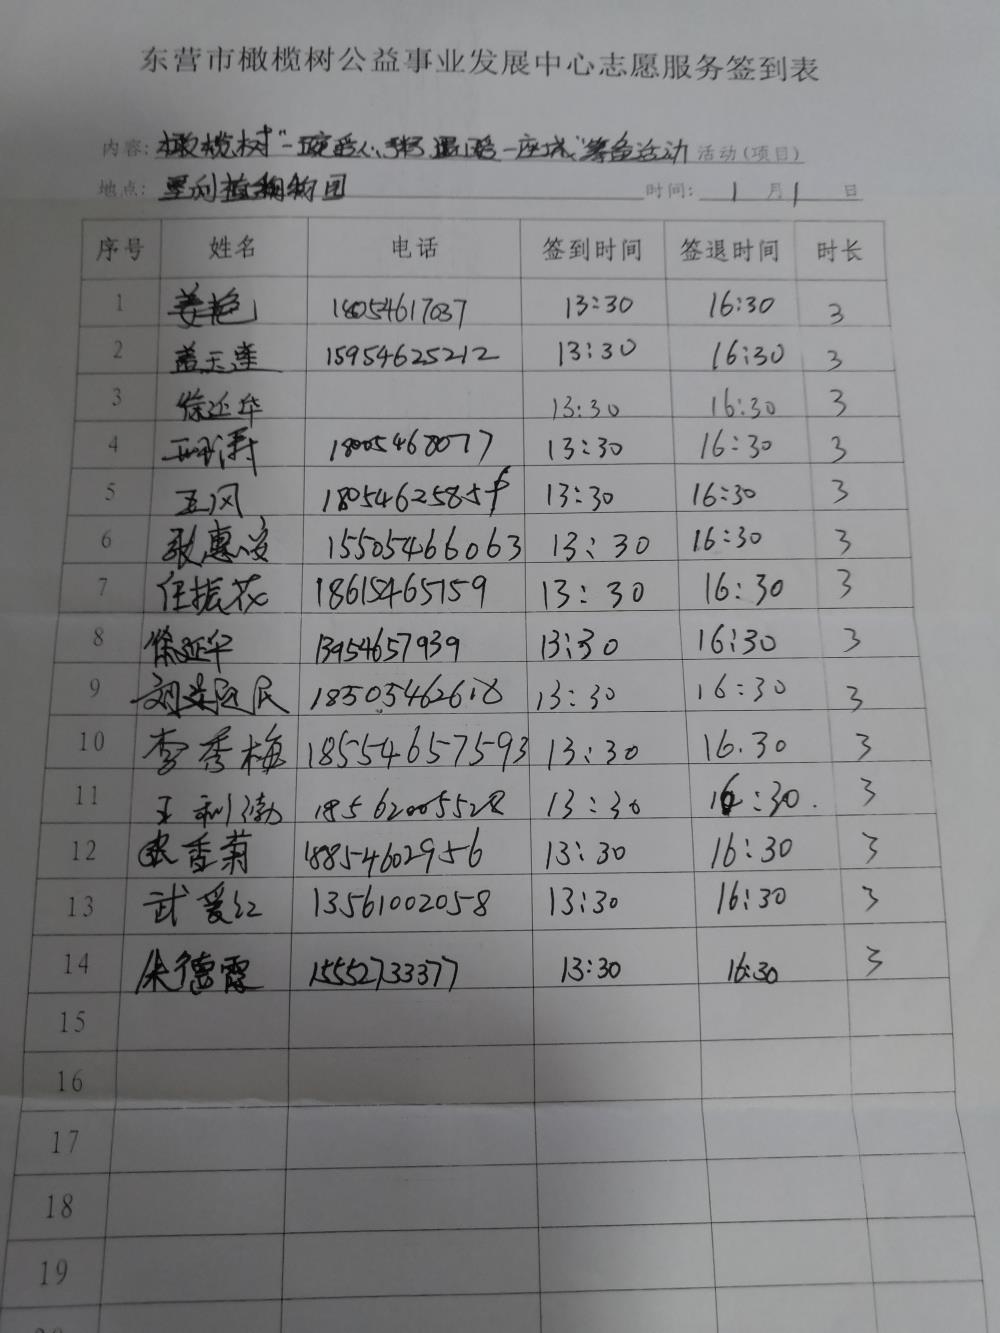 东营市橄榄树公益事业发展中心志愿服务签到表
内容: 橄榄树"一碗暖心粥 温暖一座城"筹备活动 活动(项目)
地点: 垦利植物园 时间: 1 月 1 日
序号 姓名 电话 签到时间 签退时间 时长
1 姜艳 18054617037 13:30 16:30 3
2 15954625212 13:30 16:30 3
3 徐延华 13:30 16:30 3
4 13:30 16:30 3
5 王风 13:30 16:30 3
6 15505466063 13:30 16:30 3
7 任振花 18615465759 13:30 16:30 3
8 徐延华 13954657939 13:30 16:30 3
9 18505462618 13:30 16:30 3
10 李秀梅 18554657593 13:30 16.30 3
11 王利渤 18562005528 13:30 16:30. 3
12 香菊 18854602956 13:30 16:30 3
13 武爱红 13561002058 13:30 16:30 3
14 朱德霞 15552733377 13:30 16:30 3
15
16
17
18
19